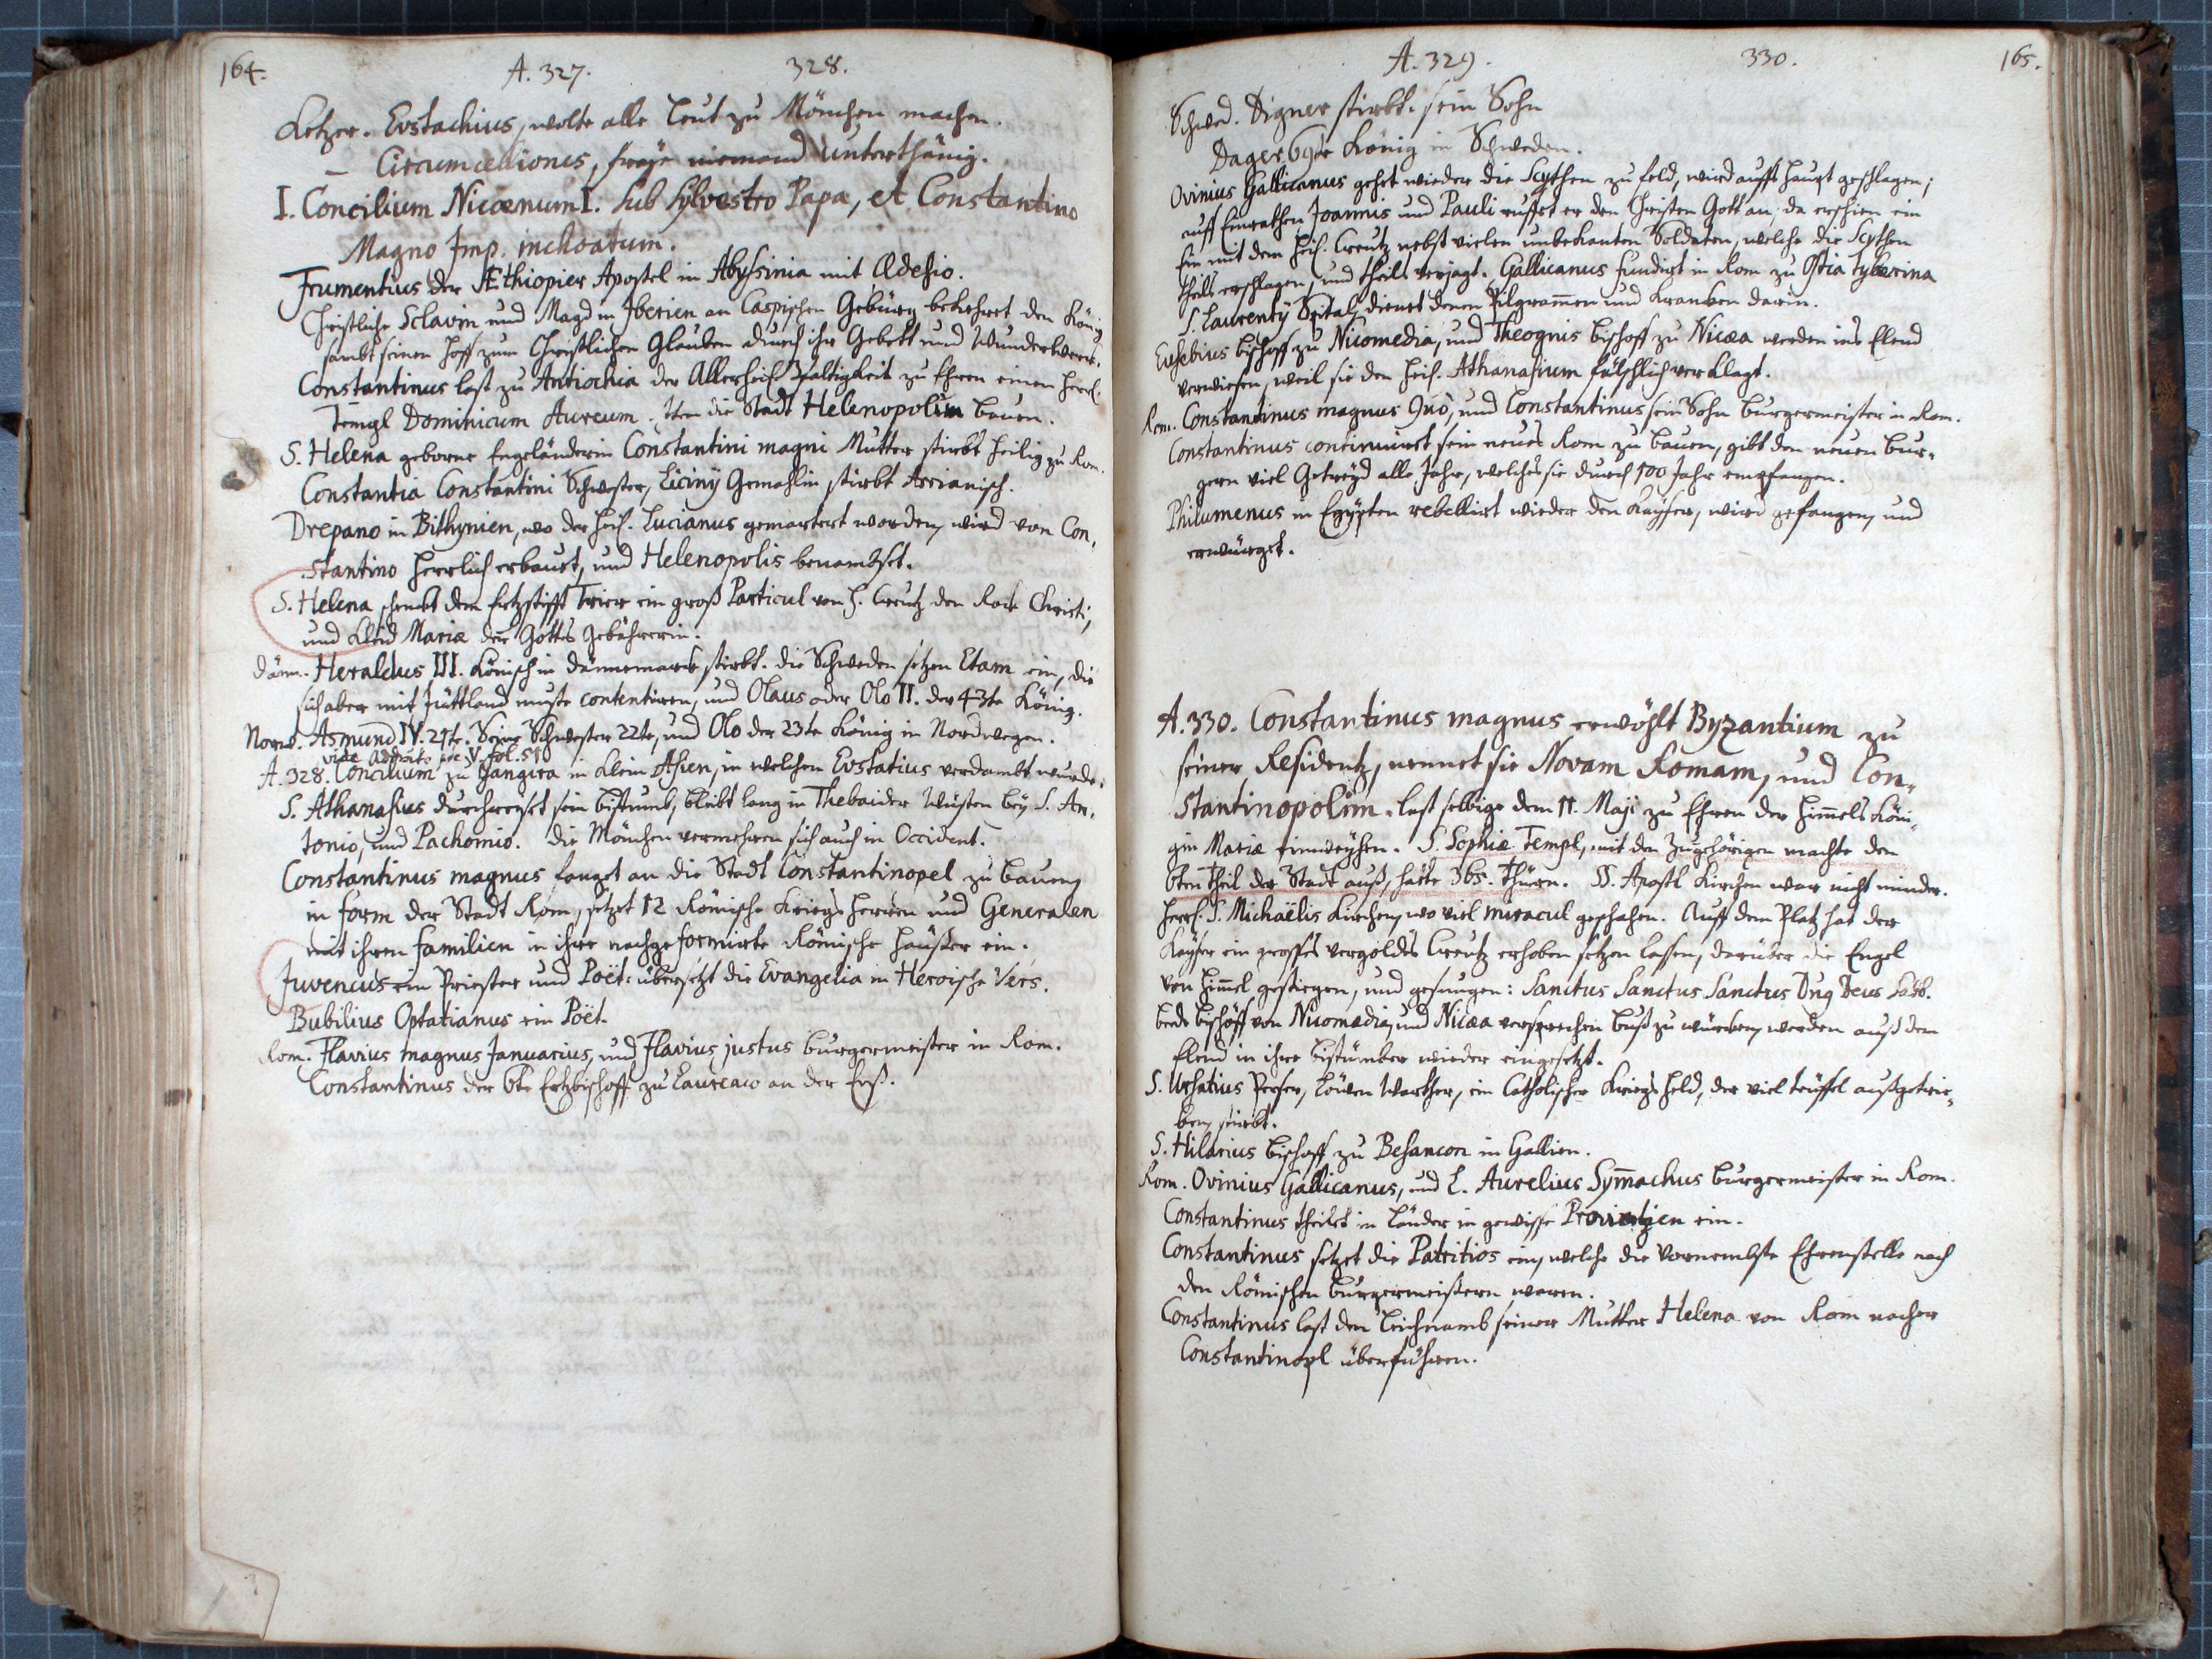 164.
A. 327.
328.
Ketzer. Eustachius, wolte alle Leut zu Mönchen machen.
– Circumcelliones, freye niemand unterthänig.
I. Concilium Nicænum I. sub Sylvestro Papa, et Constantino
Magno Imp. inchoatum.
Frumentius der Æthiopier Apostel in Abyssinia mit Ædesio.
Christliche Sclavin und Magd in Iberien an Caspischen Gebürg bekehret den König
sambt seinen Hoff zum Christlichen Glauben durch ihr Gebett und Wunderwerk.
Constantinus last zu Antiochia der Allerheil. 3faltigkeit zu Ehren einen herrl.
Templ Dominicum Aureum. Item die Stadt Helenopolim bauen.
S. Helena geborne Engeländerin Constantini magni Mutter stirbt heilig zu Rom.
Constantia Constantini Schwester, Licinij Gemahlin stirbt Arrianisch.
Drepano in Bithynien, wo der heil. Lucianus gemartert worden, wird von Con-
stantino herrlich erbauet, und Helenopolis benambset.
S. Helena schenckt dem Ertzstifft Trier ein groß Particul von H. Creutz den Rock Christi,
und Kleid Mariæ der Gottes Gebährerin.
Dänn. Heraldus III. König in Dännemarck stirbt. die Schweden setzen Etam ein, die
sich aber mit Jüttland muste contentiren, und Olaus oder Olo II. der 43te König.
Norw. Asmund IV. 21te. Seine Schwester 22te, und Olo der 23te König in Nordwegen.
vide fol. 51
A. 328. Concilium zu Gangra in klein Asien, in welchen Eustatius verdambt wurde.
S. Athanasius durchreyset sein bistumb, bleibt lang in Thebaider Wüsten bey S. An-
tonio, und Pachomio. die Mönchen vermehren sich auch in Occident.
Constantinus magnus fanget an die Stadt Constantinopel zu bauen,
in form der Stadt Rom, setzet 12 Römische Kriegs Herren und Generalen
mit ihren familien in ihre nachgeformirte Römische Häußer ein.
Juvencus ein Priester und Poët: übersetzt die Evangelia in Heroische Vers.
Bubilius Optatianus ein Poët.
Rom. Flavius magnus Januarius, und Flavius justus burgermeister in Rom.
Constantinus der 6te Ertzbischoff zu Laureaco an der Enß.
A. 329.
330.
165.
Schwed. Digner stirbt. sein Sohn
Dager 69te König in Schweden.
Ovinius Gallicanus gehet wieder die Scythen zu feld, wird auffs haupt geschlagen;
auff Einrathen Joannis und Pauli ruffet er den Christen Gott an, da erschien ein
mit dem heil. Creutz nebst vielen unbekanten Soldaten, welche die Scythen
theils erschlagen, und theils verjagt. Gallicanus fundirt in Rom zu Ostia tyberina
S. Laurentij Spital, dienet denen Pilgramen und Krancken darin.
Eusebius bischoff zu Nicomedia, und Theognis bischoff zu Nicæa werden ins Elend
verwiesen, weil sie den heil. Athanasium fälschlich verklagt.
Rom. Constantinus magnus 9nò, und Constantinus sein Sohn burgermeister in Rom.
Constantinus continuiret sein neues Rom zu bauen, gibt den neuen bur-
gern viel Getreyd alle Jahr, welches sie durch 100 Jahr empfangen.
Philumenus in Egypten rebellirt wieder den Kayser, wird gefangen, und
erwürget.
A. 330. Constantinus magnus erwöhlt Byzantium zu
seiner Residentz, nennet sie Novam Romam, und Con-
stantinopolim. last selbige dem 11. Maji zu Ehren der Himmels Köni-
gin Mariæ einweyhen. S. Sophiæ Templ, mit den Zugehörigen machte den
6ten theil der Stadt auß, hatte 365. thürn. SS. Apostl Kirchen war nicht minder.
herrl. S. Michaëlis Kirchen, wo viel miracul geschahen. Auff dem Platz hat der
Kayser ein grosses vergoldes Creutz erhoben setzen lassen, darüber die Engel
von Himmel gestiegen, und gesungen: Sanctus Sanctus Sanctus Dnq Deus Sabb.
beede bischöff von Nicomedia, und Nicæa versprechen buß zu würken, werden auß dem
Elend in ihre bistümber wieder eingesetzt.
S. Ursatius Perser, Löwen Warther, ein Catholischer Kriegs Held, der viel teüffel außgetrie-
ben, stirbt.
S. Hilarius bischoff zu Besancon in Gallien.
Rom. Ovinius Gallicanus, und L. Aurelius Symachus burgermeister in Rom.
Constantinus theilet in Länder in gewisse Provintzien ein.
Constantinus setzet die Patritios ein, welche die Vornembste Ehrenstelle nach
den Römischen burgermeistern waren.
Constantinus last den Leichnamb seiner Mutter Helena von Rom nacher
Constantinopl überführen.